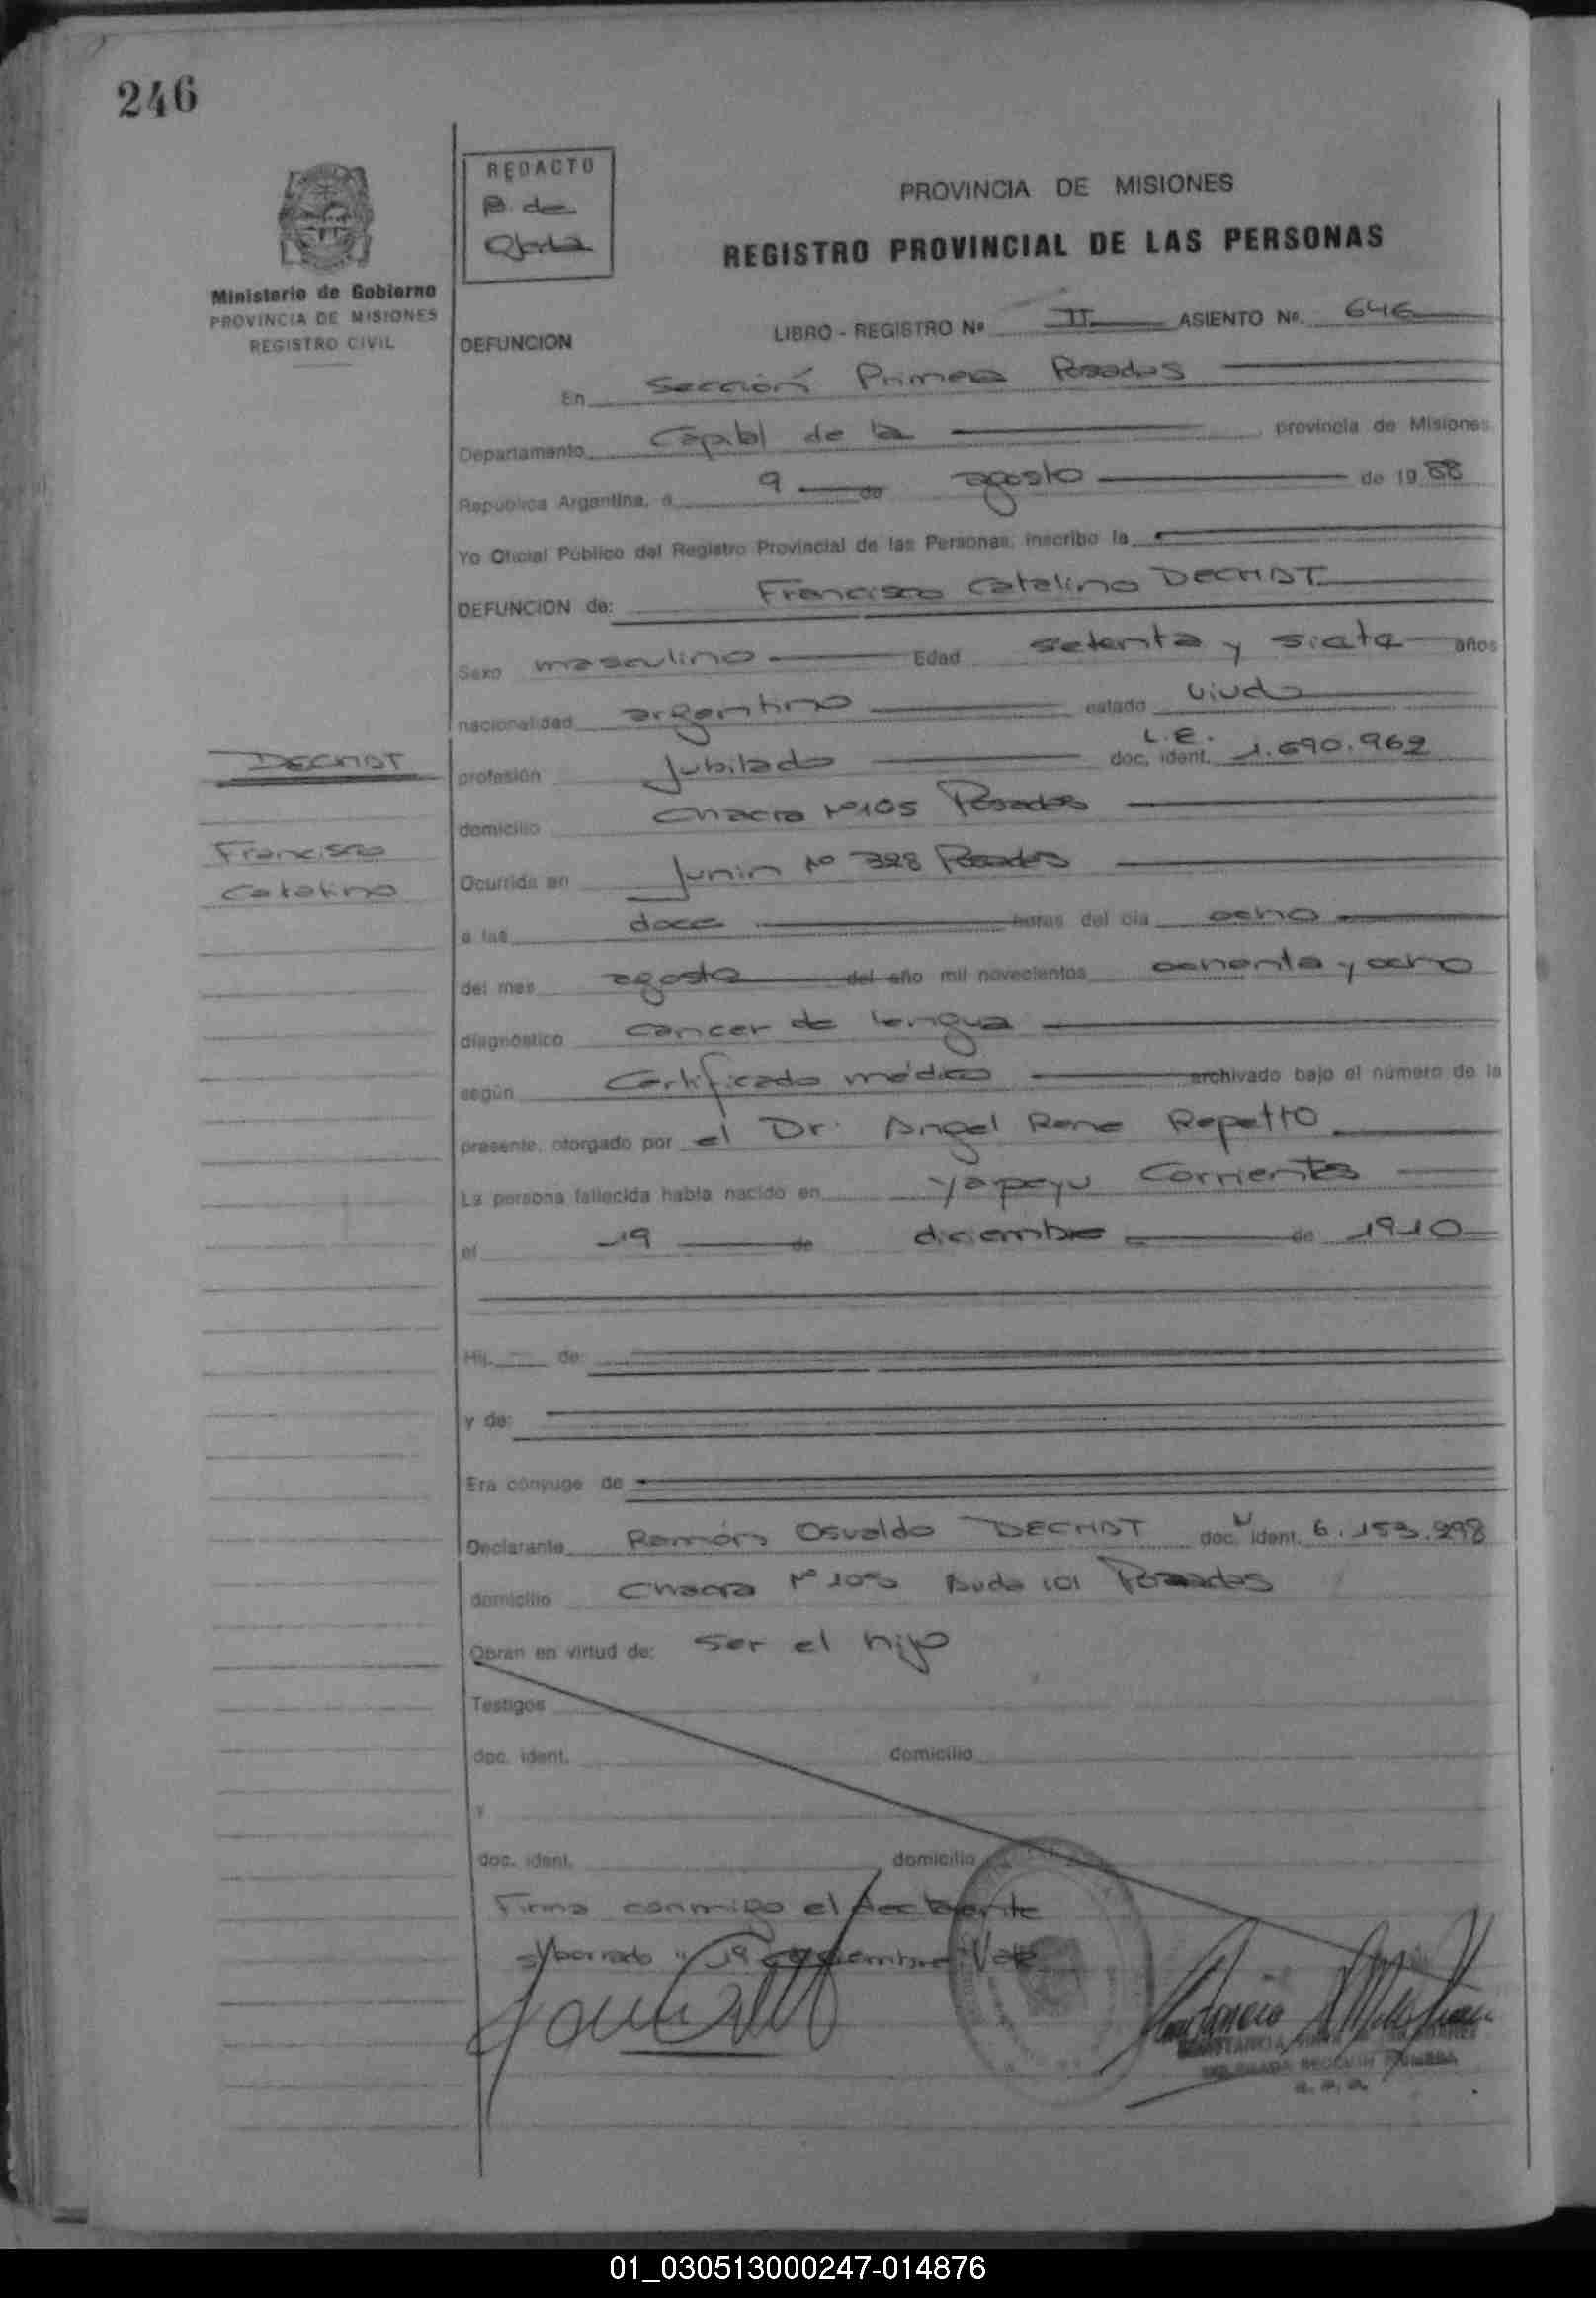 246
REDACTO
B. de
Ministerio de Gobierno
PROVINCIA DE MISIONES
REGISTRO CIVIL
PROVINCIA DE MISIONES
REGISTRO PROVINCIAL DE LAS PERSONAS
DEFUNCION LIBRO - REGISTRO Nº II ASIENTO Nº. 646
En Sección Primera Posadas
Departamento Capital de la provincia de Misiones
Republica Argentina, a 9 de agosto de 1988
Yo Oficial Público del Registro Provincial de las Personas, inscribo la
DEFUNCION de: Francisco Catalino DECHDT
Sexo masculino Edad setenta y siete años
nacionalidad argentino estado viudo
DECHDT
profesión Jubilado L.E. doc. ident. 1.690.962
domicilio Chacra Nº 105 Posadas
Francisco
Catalino
Ocurrida en Junin Nº 328 Posadas
a las doce horas del dia ocho
del mes agosto del año mil novecientos ochenta y ocho
diagnóstico cancer de lengua
según Certificado médico archivado bajo el número de la
presente, otorgado por el Dr. Angel Rene Repetto
La persona fallecida habia nacido en Yapeyu Corrientes
el 19 de diciembre de 1910
Hij de:
y de:
Era cónyuge de
Declarante Ramón Osvaldo DECHDT doc. ident. 6.153.998
domicilio Chacra Nº 105 101 Posadas
Obran en virtud de: Ser el hijo
Testigos
doc. ident. domicilio
y
doc. ident. domicilio
Firma conmigo el declarante
s/borrado "19 Vale
01_030513000247-014876